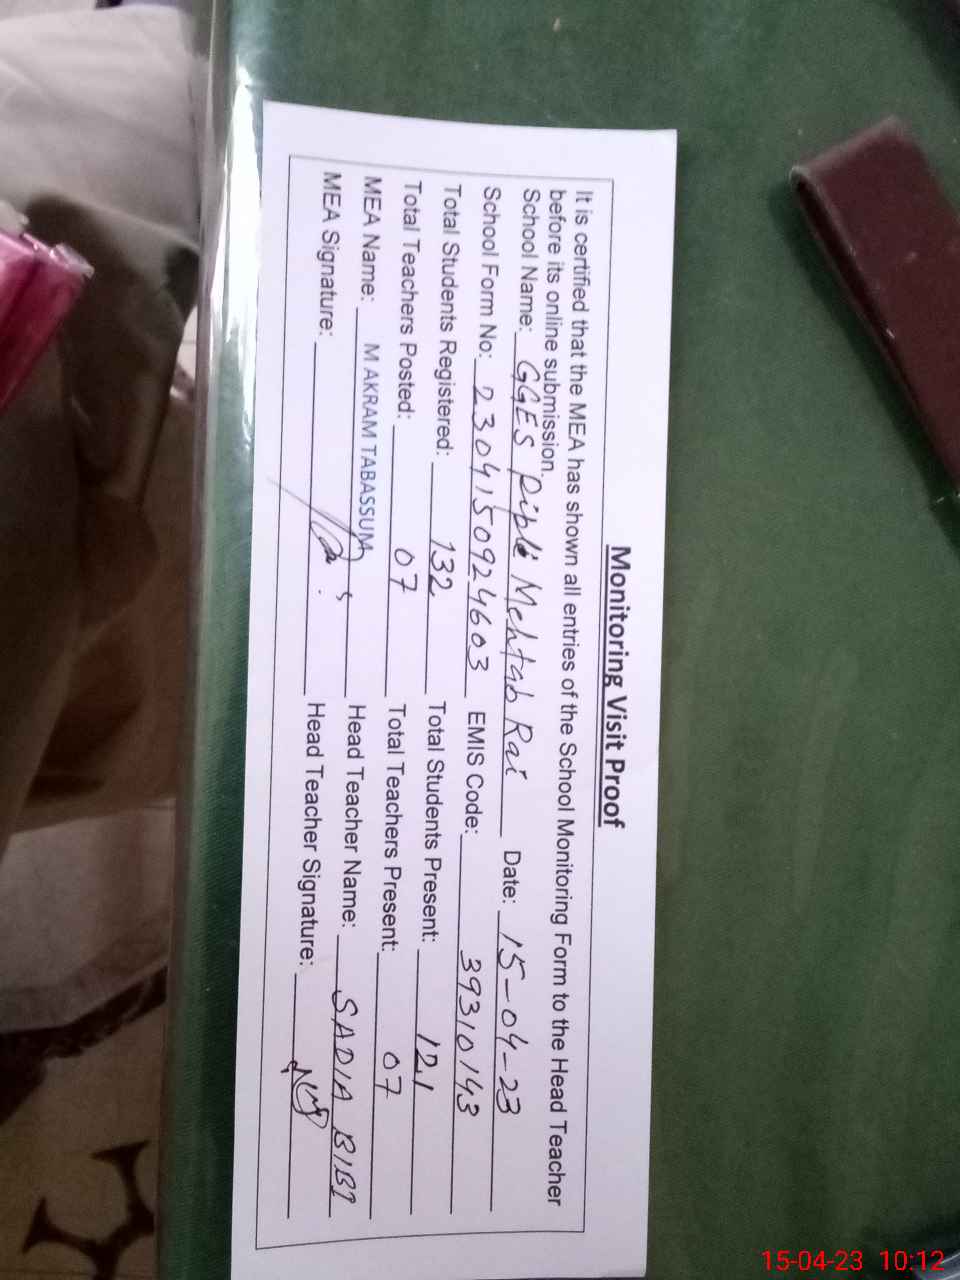 Monitoring Visit Proof
It is certified that the MEA has shown all entries of the School Monitoring Form to the Head Teacher
before its online submission.
School Name: GGES Pipli Mehtab Rai Date: 15-04-23
School Form No: 2304150924603 EMIS Code: 39310143
Total Students Registered: 132 Total Students Present: 121
Total Teachers Posted: 07 Total Teachers Present: 07
MEA Name: M AKRAM TABASSUM Head Teacher Name: SADIA BIBI
MEA Signature: Head Teacher Signature:
15-04-23 10:12